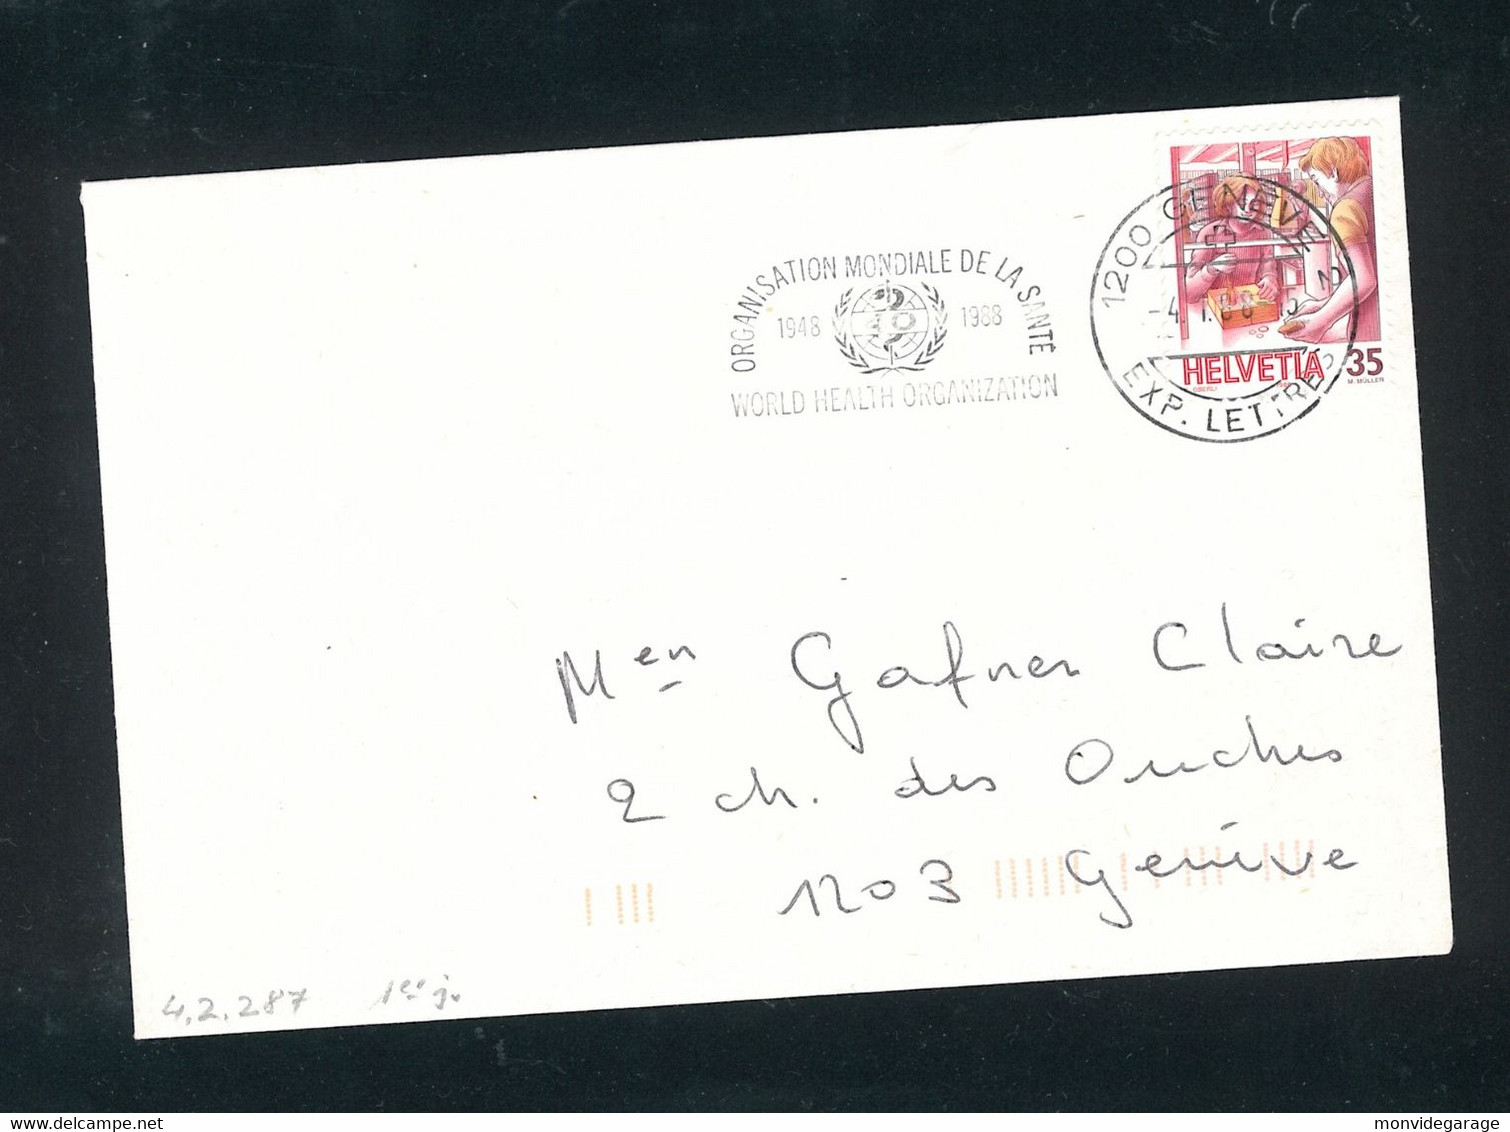 ORGANISATION MONDIALE DE LA SANTÉ
1948 40 1988
WORLD HEALTH ORGANIZATION
1200 GENÈVE 2
-4. 1.88
EXP. LETTRES
HELVETIA 35
M. MÜLLER
Men Gafner Claire
2 ch. des Ouches
1203 Genève
4.2.287 1er j.
monvidegarage